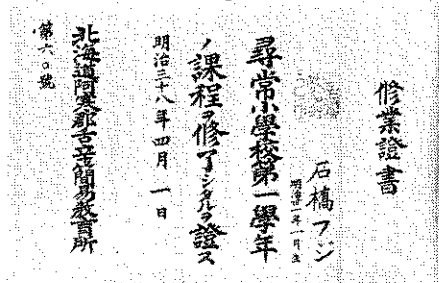 修業證書
石橋フジ
明治三一年一月生
尋常小學校第一學年
ノ課程ヲ修了シタルヲ證ス
明治三十八年四月一日
北海道阿寒郡舌辛簡易敎育所
第六〇號